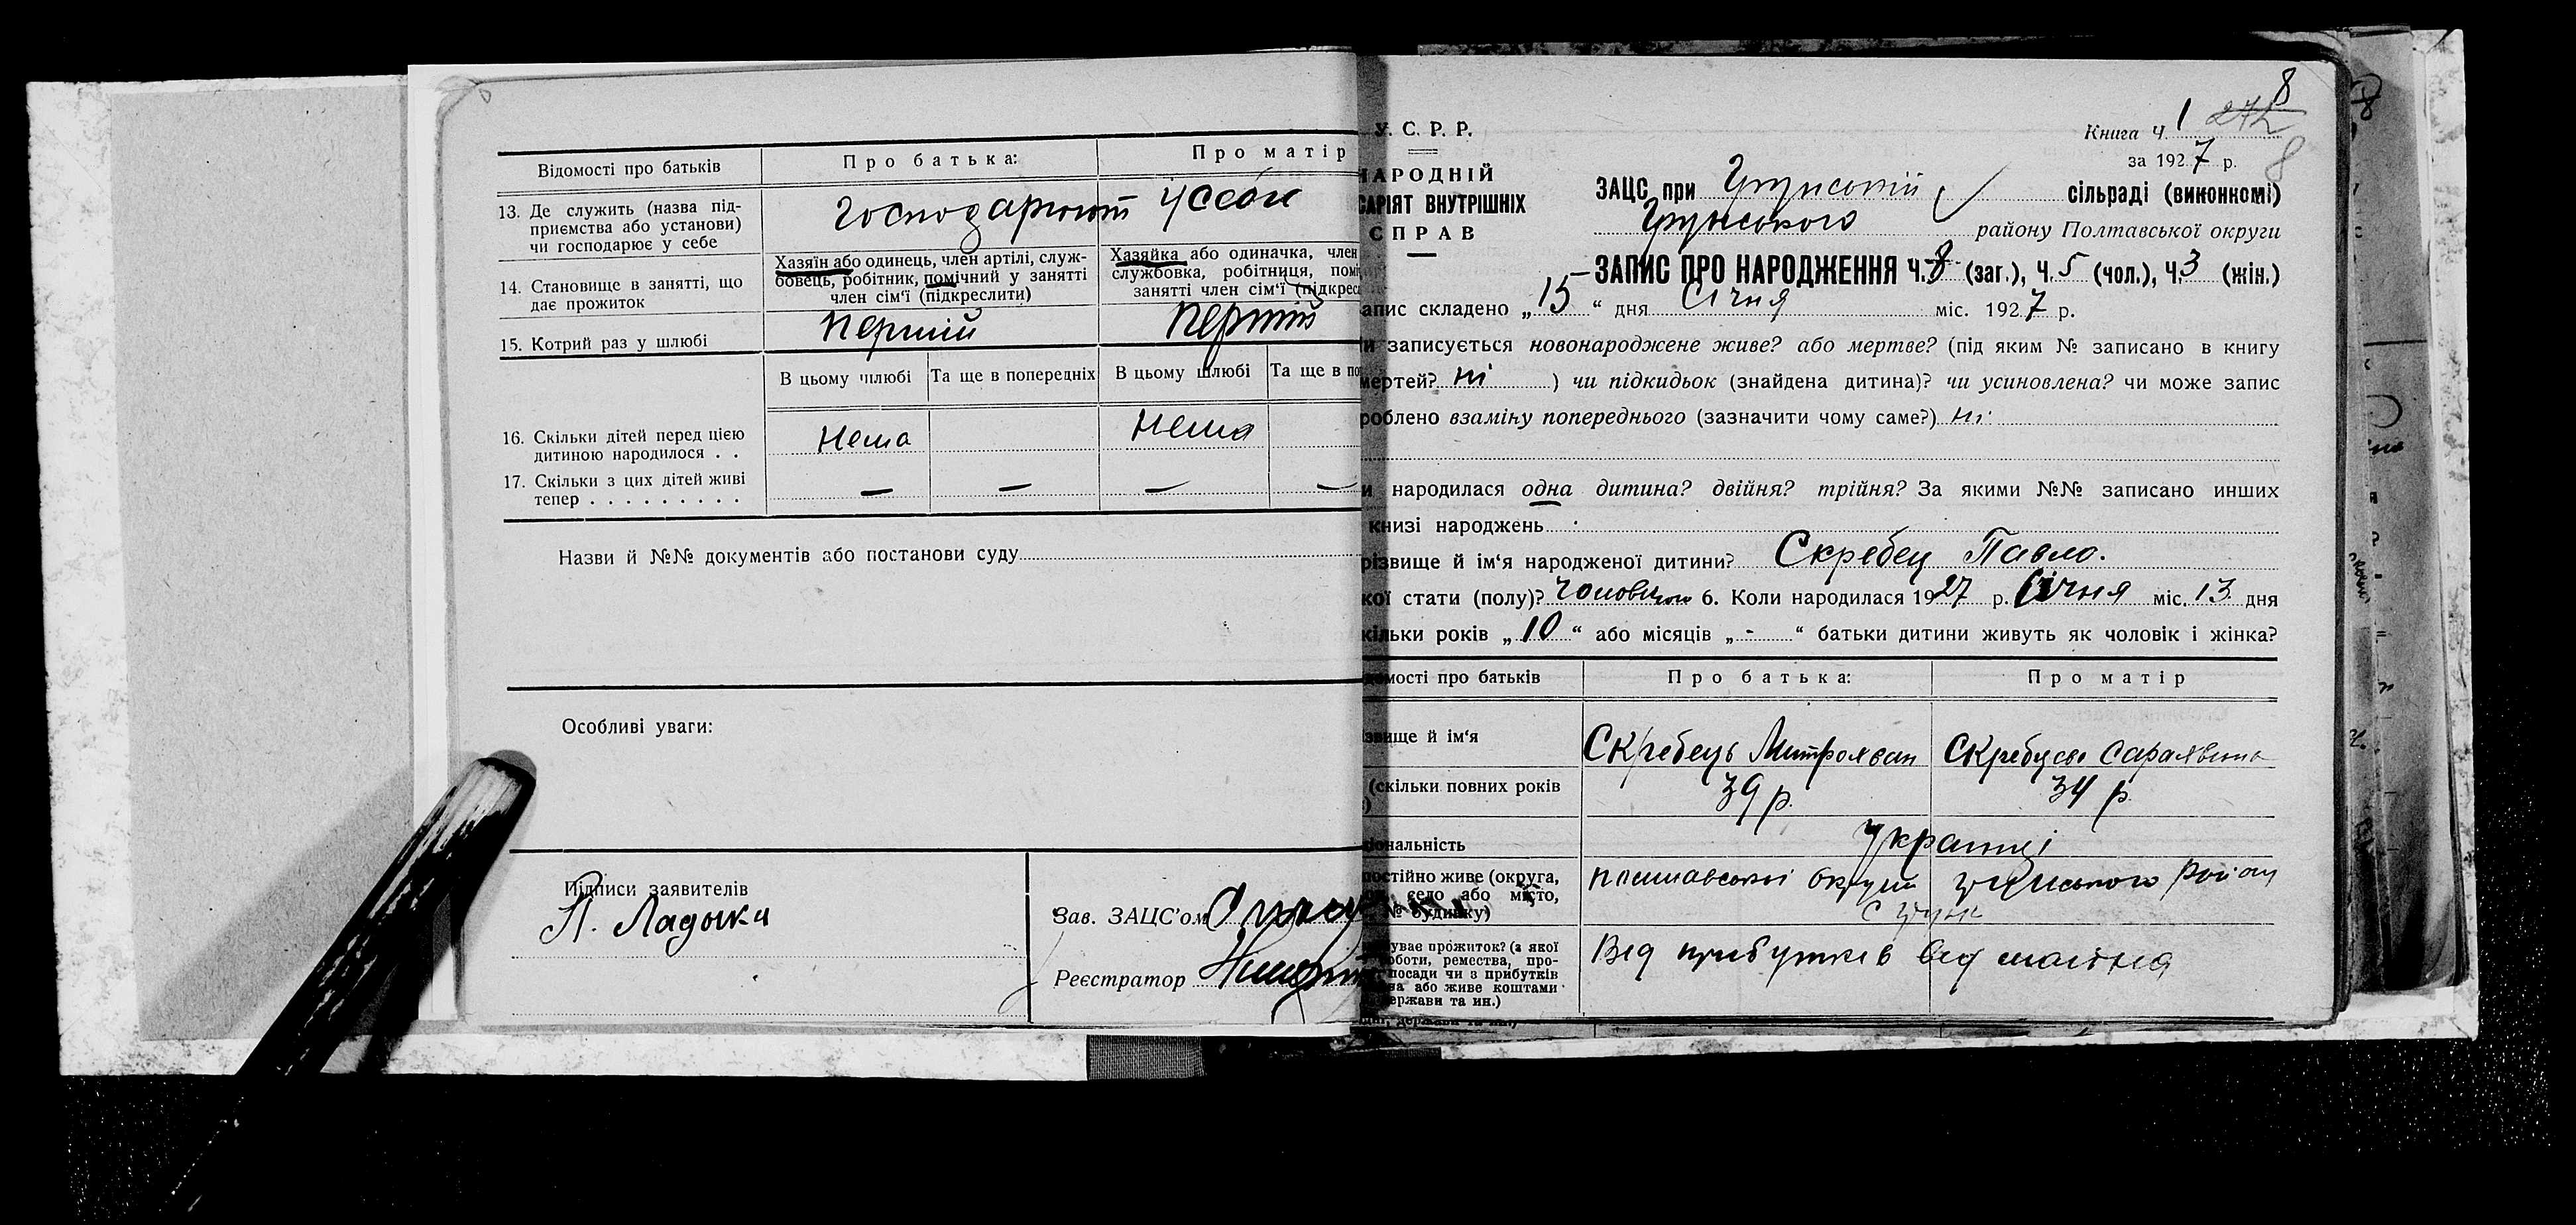 Відомості про батьків
Про батька:
Про матір
13. Де служить (назва під-
приємства або установи)
чи господарює у себе
Господарюют у себе
14. Становище в занятті, що
дає прожиток
Хазяїн або одинець, член артілі, служ-
бовець, робітник, помічний у занятті
член сім'ї (підкреслити)
Хазяйка або одиначка, член
службовка, робітниця, помі
занятті член сім'ї (підкрес
15. Котрий раз у шлюбі
перший
перший
В цьому шлюбі
Та ще в попередніх
В цьому шлюбі
Та ще в по
16. Скільки дітей перед цією
дитиною народилося . .
Нема
Нема
17. Скільки з цих дітей живі
тепер . . . . . . . . .
—
—
—
—
Назви й №№ документів або постанови суду
Особливі уваги:
Підписи заявителів
П. Ладыка
Зав. ЗАЦС'ом
Реєстратор
У. С. Р. Р.
НАРОДНІЙ
САРІЯТ ВНУТРІШНІХ
СПРАВ
8
Книга Ч. 1 272
за 1927 р.
8
ЗАЦС при Грунський сільраді (виконкомі)
Грунського району Полтавської округи
ЗАПИС ПРО НАРОДЖЕННЯ Ч. 8 (заг.), Ч. 5 (чол.), Ч. 3 (жін.)
апис складено „15“ дня Січня міс. 1927 р.
и записується новонароджене живе? або мертве? (під яким № записано в книгу
мертей? ні ) чи підкидьок (знайдена дитина)? чи усиновлена? чи може запис
роблено взаміну попереднього (зазначити чому саме?) ні
и народилася одна дитина? двійня? трійня? За якими №№ записано инших
книзі народжень
різвище й ім'я народженої дитини? Скребец Павло.
кої стати (полу)? Чоловічою 6. Коли народилася 1927 р. Січня міс. 13 дня
кільки років „10“ або місяців „-“ батьки дитини живуть як чоловік і жінка?
омості про батьків
Про батька:
Про матір
звище й ім'я
Скребець Митрофан
Скребцева
(скільки повних років
39 р.
34 р.
іональність
Українці
постійно живе (округа,
село або місто,
№ будинку)
Полтавської округи Грунського району
с Грунь
уває прожиток? (з якої
оботи, ремества, про-
посади чи з прибутків
ва або живе коштами
ержави та ин.)
Від прибутків від майна